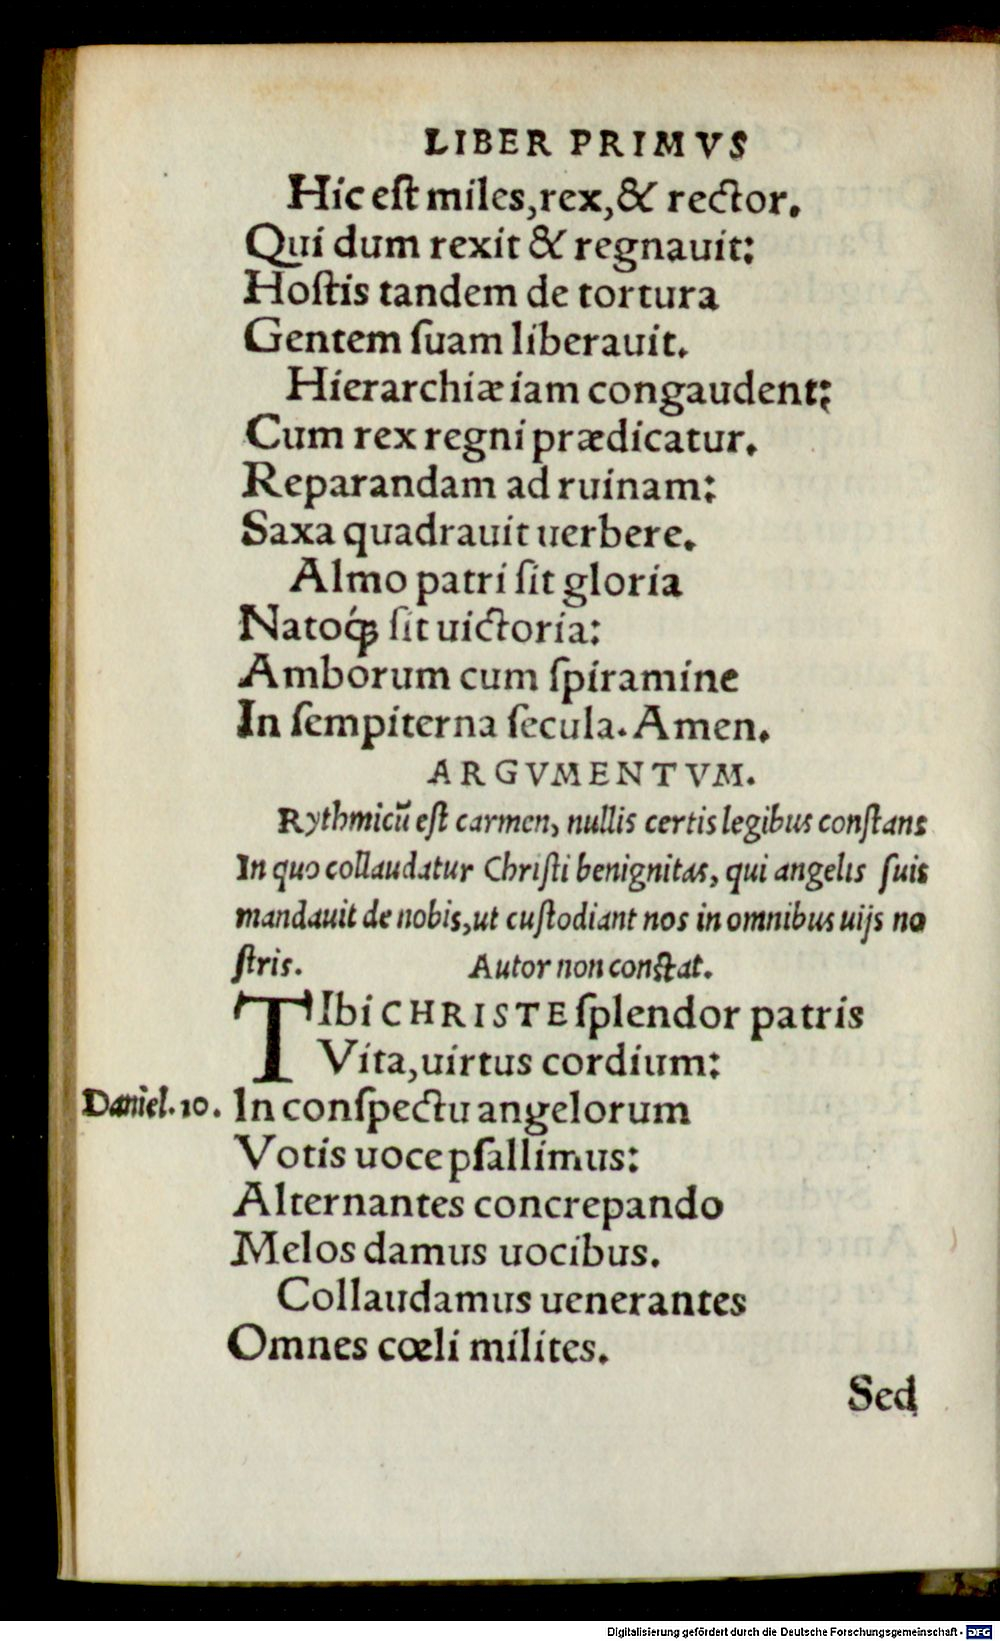 LIBER PRIMVS
Hic eſt miles, rex, & rector.
Qui dum rexit & regnauit:
Hoſtis tandem de tortura
Gentem ſuam liberauit.
Hierarchiæ iam congaudent:
Cum rex regni prædicatur.
Reparandam ad ruinam:
Saxa quadrauit uerbere.
Almo patri ſit gloria
Natoq́ꝫ ſit uictoria:
Amborum cum ſpiramine
In ſempiterna ſecula. Amen.
ARGVMENTVM.
Rythmicũ eſt carmen, nullis certis legibus conſtans
In quo collaudatur Chriſti benignitas, qui angelis ſuis
mandauit de nobis, ut cuſtodiant nos in omnibus uijs no
ſtris. Autor non conſtat.
TIbi CHRISTE ſplendor patris
Vita, uirtus cordium:
Daniel. 10. In conſpectu angelorum
Votis uoce pſallimus:
Alternantes concrepando
Melos damus uocibus.
Collaudamus uenerantes
Omnes cœli milites.
Sed
Digitalisierung gefördert durch die Deutsche Forschungsgemeinschaft - DFG